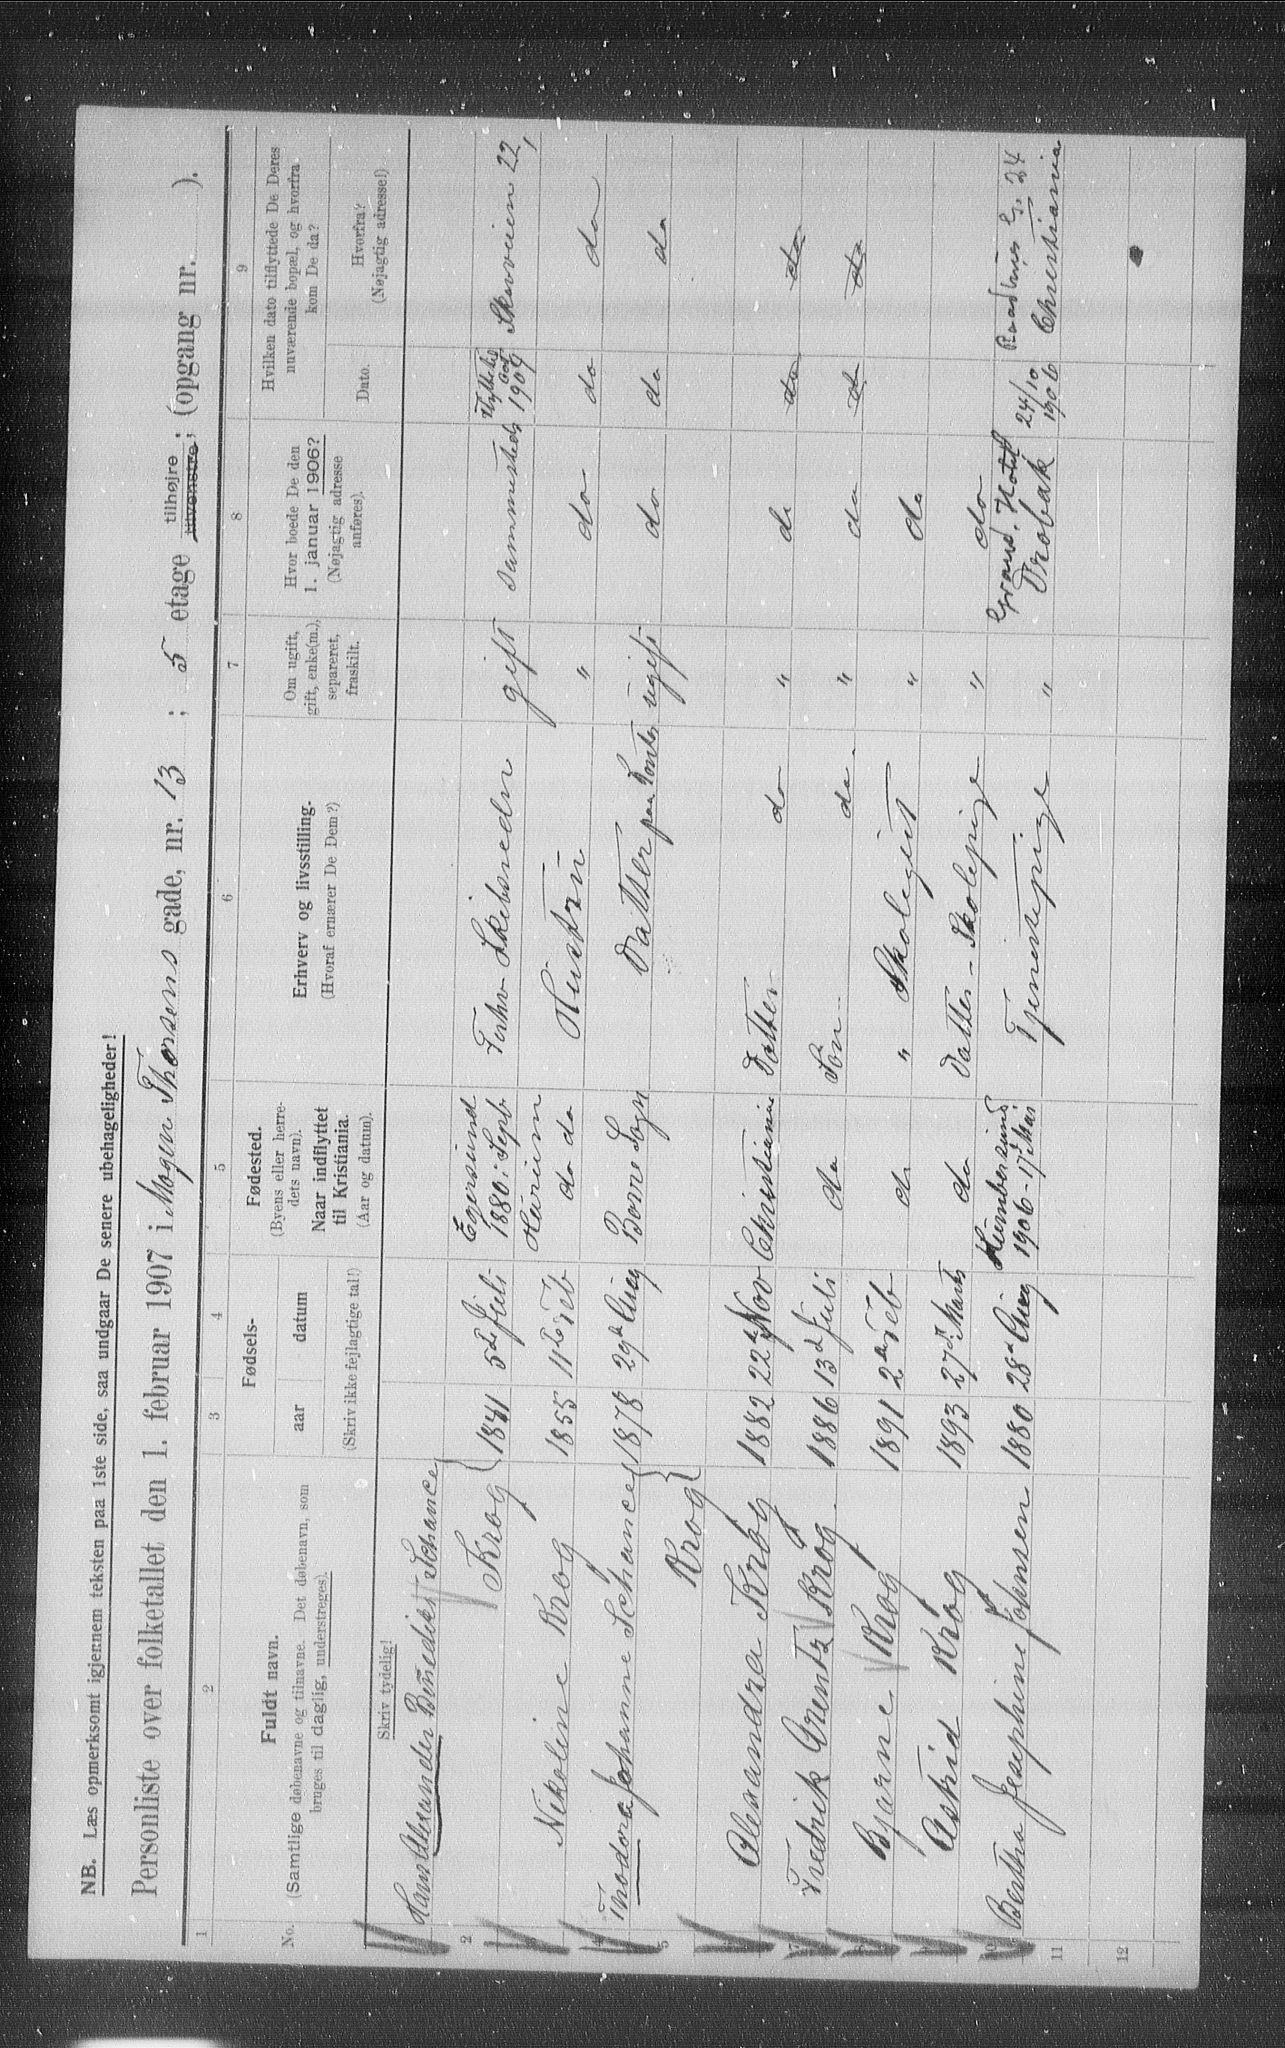 NB. Læs opmerksomt igjennem teksten paa 1ste side, saa undgaar De senere ubehageligheder!
Personliste over folketallet den 1. februar 1907 i Mogen Thorsens gade, nr. 13 ; 5 etage tilhøjre tilvenstre; (opgang nr. ).
1 2 3 4 5 6 7 8 9
No.
Fuldt navn.
(Samtlige døbenavne og tilnavne. Det døbenavn, som
bruges til daglig, understreges).
Skriv tydelig!
Fødsels-
aar datum
(Skriv ikke fejlagtige tal!)
Fødested.
(Byens eller herre-
dets navn).
Naar indflyttet
til Kristiania.
(Aar og datum).
Erhverv og livsstilling.
(Hvoraf ernærer De Dem?)
Om ugift,
gift, enke(m.),
separeret,
fraskilt.
Hvor boede De den
1. januar 1906?
(Nøjagtig adresse
anføres).
Hvilken dato tilflyttede De Deres
nuværende bopæl, og hvorfra
kom De da?
Dato.
Hvorfra?
(Nøjagtig adresse!)
1 Hans Alexander Benedikt Schance
2 Krog 1841 5te Juli Egersund 1880 i Sept Forhv Skibsreder gift Sammesteds 1904 Skovveien 22,
3 Nikoline Krog 1855 11te Feb do do Hustru " do do do
4 Thodora Johanne Schance 1878 29de Aug Borre Sogn Datter paa Kontor ugift do do do
5 Krog
6 Alexandra Krog 1882 22de Nov Christiania Datter do " do do do
7 Fredrik Krog 1886 13de Juli do Søn do " do do do
8 Bjarne Krog 1891 2den Feb do " Skolegut " do
9 Astrid Krog 1893 27de Marts do Datter - Skolepige " do
10 Bertha Josephine Johnsen 1880 28de Aug 1906 - 17de Mai Tjenestepige " Grand Hotel Drøbak 24/10 1906 Raadhus G. 24 Christiania
11
12